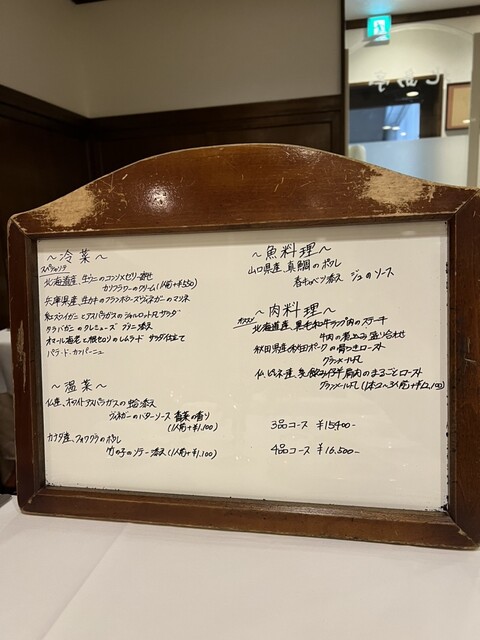 ～冷菜～
スペシャリテ
北海道産、生ウニのコンソメゼリー寄せ
カリフラワーのクリーム(1人前+¥550)
兵庫県産、生カキのフランボワーズヴィネガーのマリネ
紅ズワイガニとアスパラガスのシャルロット風サラダ
タラバガニのレムラード
オマール海老と根セロリのレムラード サラダ仕立て
パテ・ド・カンパーニュ
～温菜～
仏産、ホワイトアスパラガスの 添え
ヴィネガーのバターソース 香菜の香り
(1人前+¥1.100)
カナダ産、フォワグラのポワレ
竹の子のソテー添え(1人前+¥1.100)
～魚料理～
山口県産、真鯛のポワレ
春キャベツ添え ジュのソース
～肉料理～
オススメ 北海道産、黒毛和牛ランプ肉のステーキ
牛肉の煮込み 盛り合わせ
秋田県産 ポークの骨つきロースト
グランメール風
仏、ピレネ産、乳飲み仔羊肩肉のまるごとロースト
グランメール風
3品コース ¥15400-
4品コース ¥16.500-